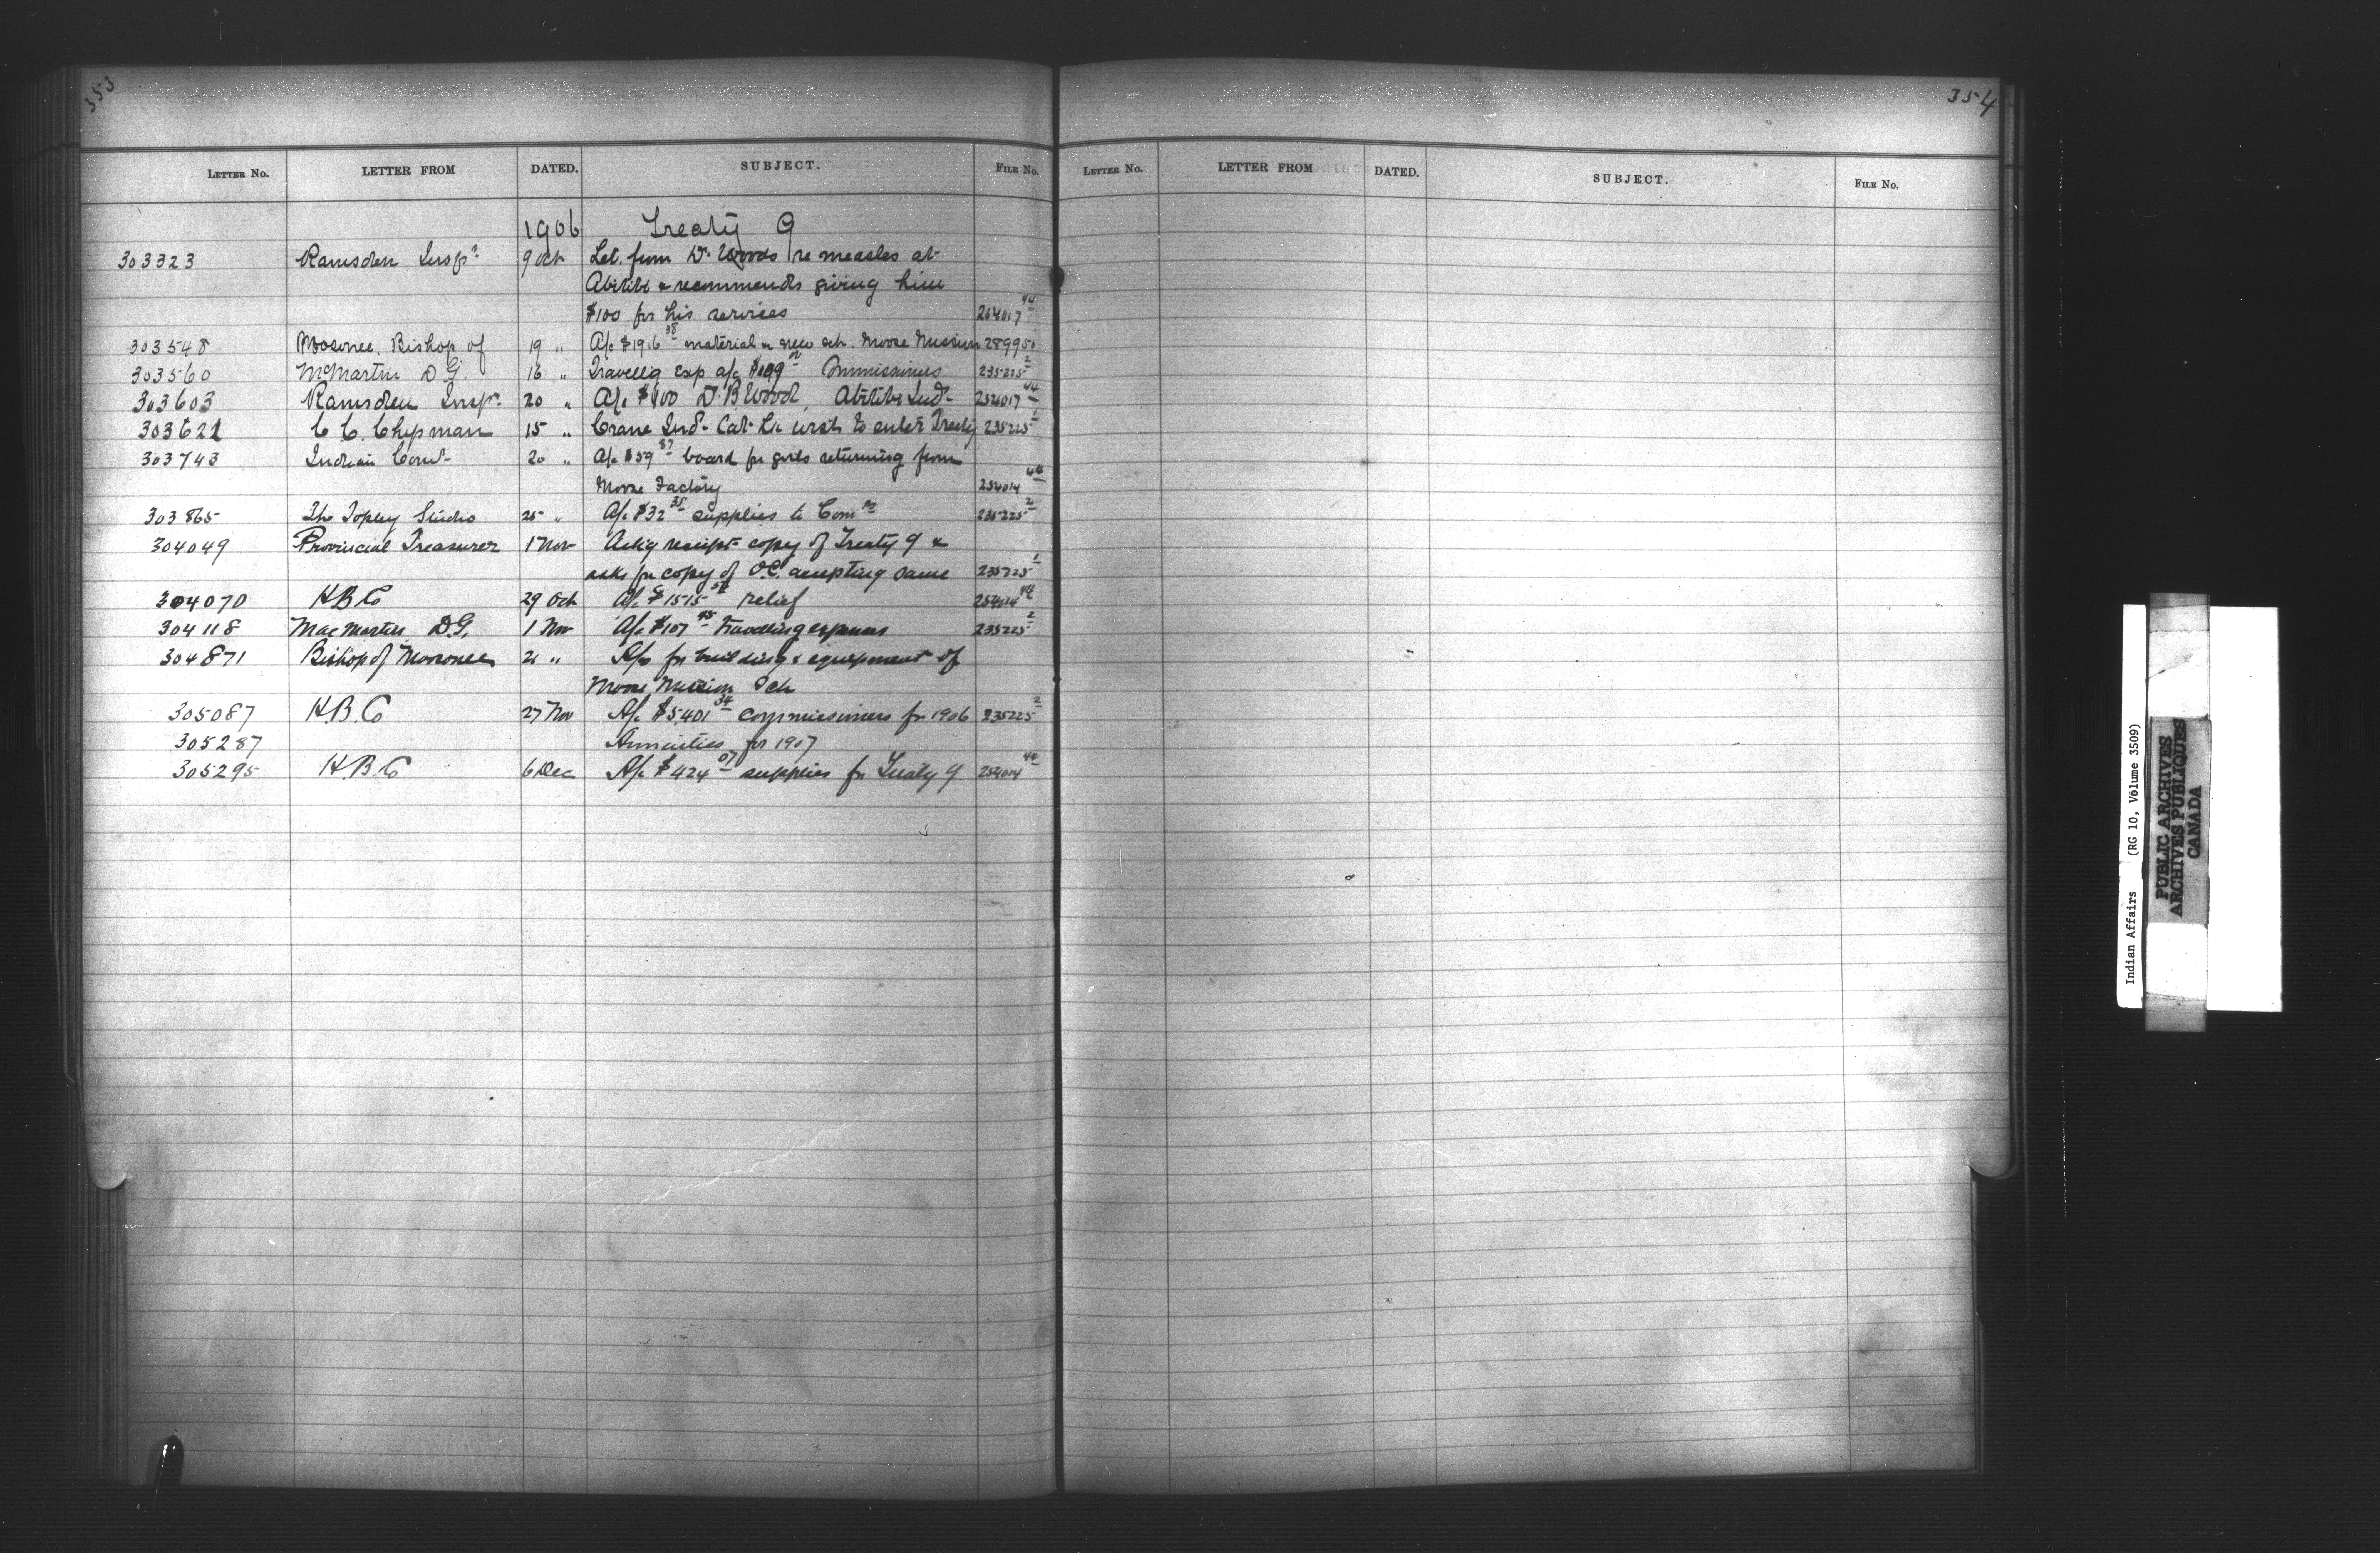 353
LETTER No. LETTER FROM DATED. SUBJECT. FILE No.
1906 Treaty 9
303323 Ramsden Inspr 9 Oct Let. from Dr. Woods re measles at
Abitibi & recommends giving him
$100 for his services 254017 44
303548 Moosonee, Bishop of 19 " A/c $1916 38 material & new sch. Moose Mission 289950
303560 McMartin D G. 16 " Travellig Exp a/c Commissioners 235225 2
303603 Ramsden Inspr. 20 " A/c $100 Dr. B. Wood, Abitibi Inds 254017 44
303621 C C. Chipman 15 " Crane Inds Cat Lk wish to enter Treaty 235225 1
303743 Indian Comr 20 " A/c $59 87 board for girls returning from
Moose Factory 254014 44
303865 The Topley Studio 25 " A/c $32 35 supplies to Comrs 235225 2
304049 Provincial Treasurer 1 Nov Ackg receipt copy of Treaty 9 &
asks for copy of O.C. accepting same 235225 1
304070 H B Co 29 Oct A/c $1515 relief 254014 44
304118 MacMartin D.G. 1 Nov A/c $107 travelling expenses 235225 2
304871 Bishop of Moosonee 21 " A/cs for building & equipment of
Moose Mission Sch
305087 H.B.Co 27 Nov A/c $5,401 34 commissioners for 1906 235225 2
305287 Annuities for 1907
305295 H.B.Co 6 Dec A/c $424 07 supplies for Treaty 9 254014 44
354
LETTER No. LETTER FROM DATED. SUBJECT. FILE No.
Indian Affairs (RG 10, Volume 3509)
PUBLIC ARCHIVES
ARCHIVES PUBLIQUES
CANADA